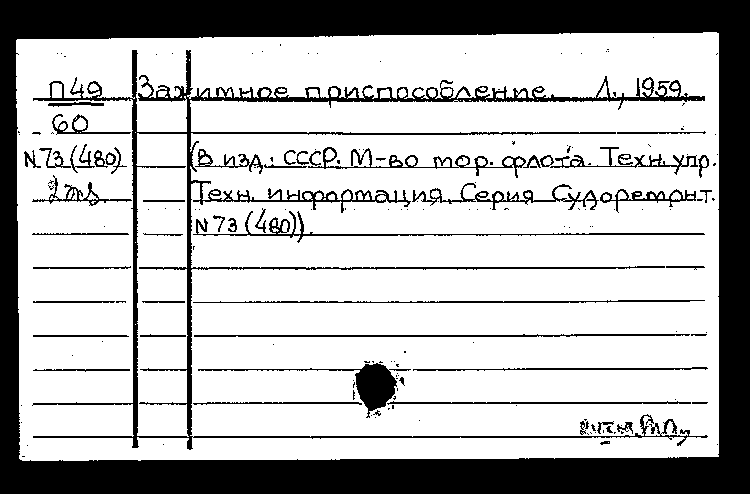 П49 Зажимное приспособление. Л., 1959.
60
N73(480) (В изд.: СССР. М-во мор. флота. Техн. упр.
2 экз. Техн. информация. Серия Судоремонт.
N73(480)).